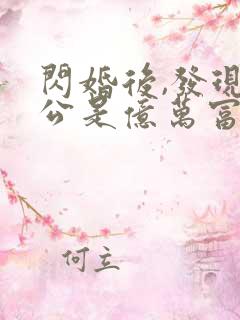 閃婚後,發現
公是億萬富
何立